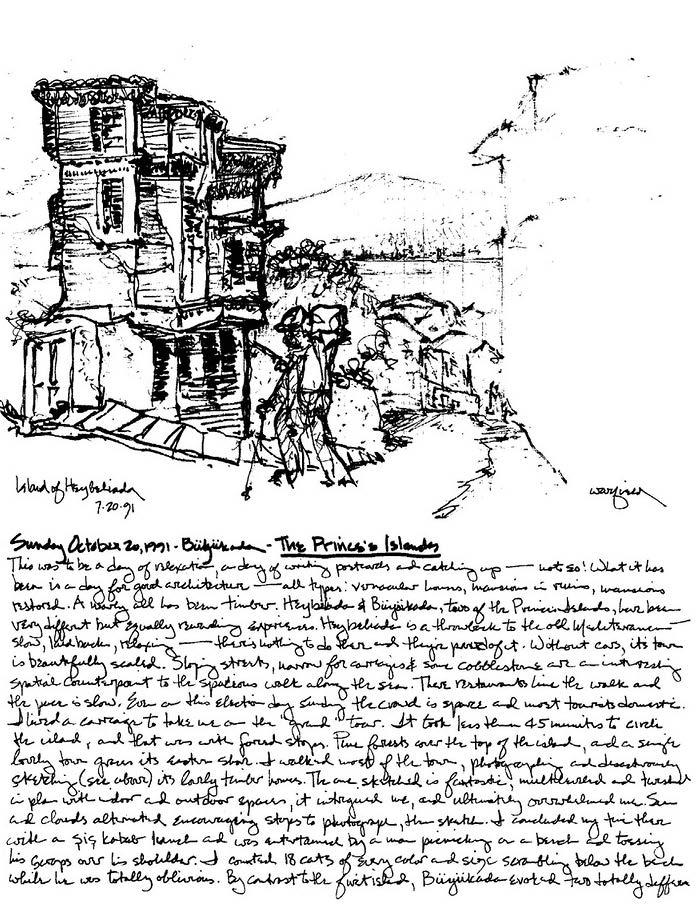 Island of Heybeliada
7.20.91
Sunday October 20, 1991 - Büyükada - The Princes's Islands
This was to be a day of relaxation, a day of writing postcards and catching up — not so! What it has
been is a day for good architecture — all types: vernacular homes, mansions in ruins, mansions
restored. A nearly all has been timber. Heybeliada & Büyükada, two of the Princes Islands, have been
very different but equally rewarding experiences. Heybeliada is a throwback to the old Mediterranean —
slow, laid back, relaxing — there is nothing to do there and they're proud of it. Without cars, its town
is beautifully scaled. Sloping streets, narrow for carriages & some cobblestone are an interesting
spatial counterpoint to the spacious walk along the sea. There restaurants line the walk and
the pace is slow. Even on this election day Sunday the crowd is sparce and most tourists domestic.
I hired a carriage to take me on the "grand" tour. It took less than 45 minutes to circle
the island, and that was with forced stops. Pine forests cover the top of the island, and a single
lovely town graces its eastern shore. I walked most of the town, photographing and
sketching (see above) its lovely timber homes. The one sketched is fantastic, multilevered and twisted
in plan with indoor and outdoor spaces, it intrigued me, and ultimately overwhelmed me. Sun
and clouds alternated encouraging stops to photograph, then sketch. I concluded my time there
with a şiş kabab lunch and was entertained by a man picnicking on a bench and tossing
his scraps over his shoulder. I counted 18 cats of every color and size scrambling below the bench
while he was totally oblivious. By contrast to the first island, Büyükada evoked two totally different